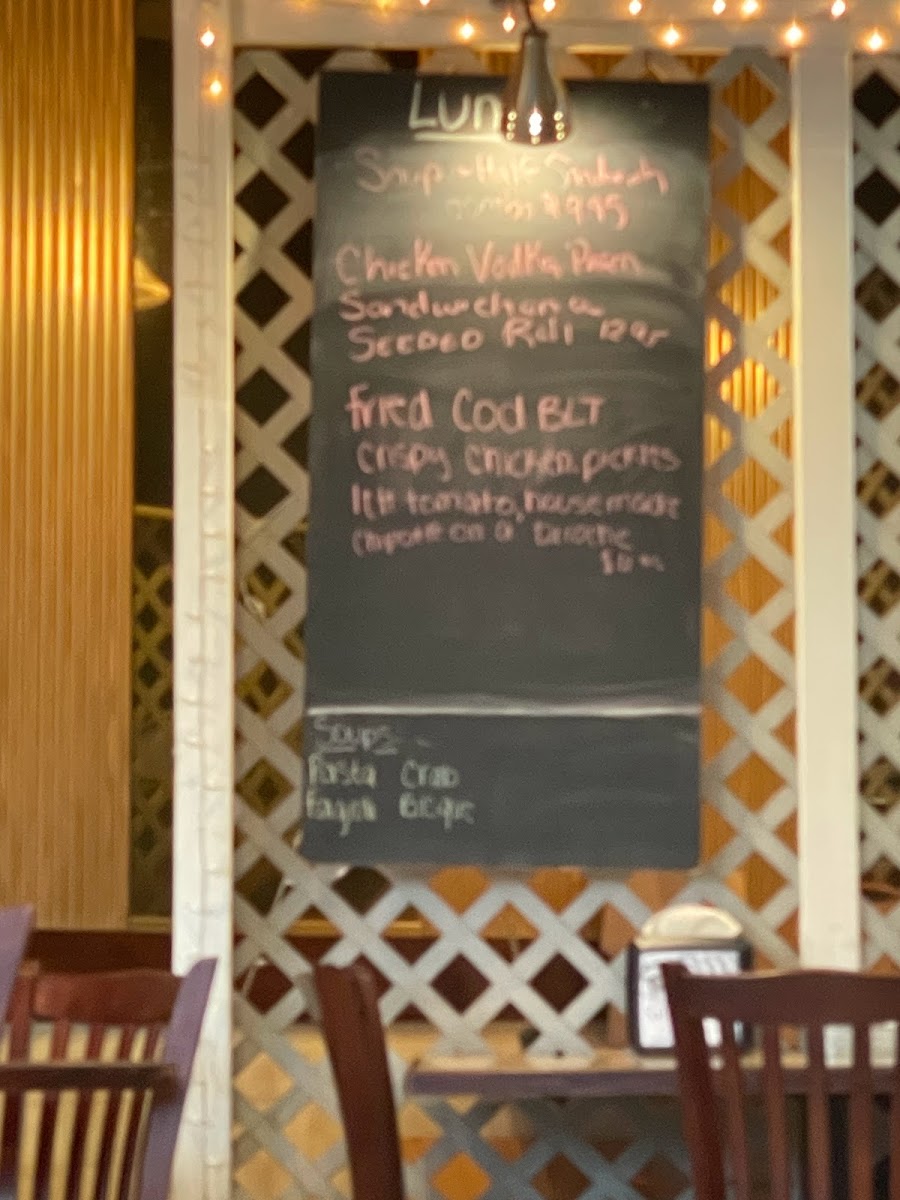 Lun
Soup + Half Sandwich
$9.95
Chicken Vodka Parm
Sandwich on a
SEEDED Roll 12.95
fried Cod BLT
crispy chicken, pickles
tomato, house made
on a brioche
Soups
Pasta Crab
Fagioli